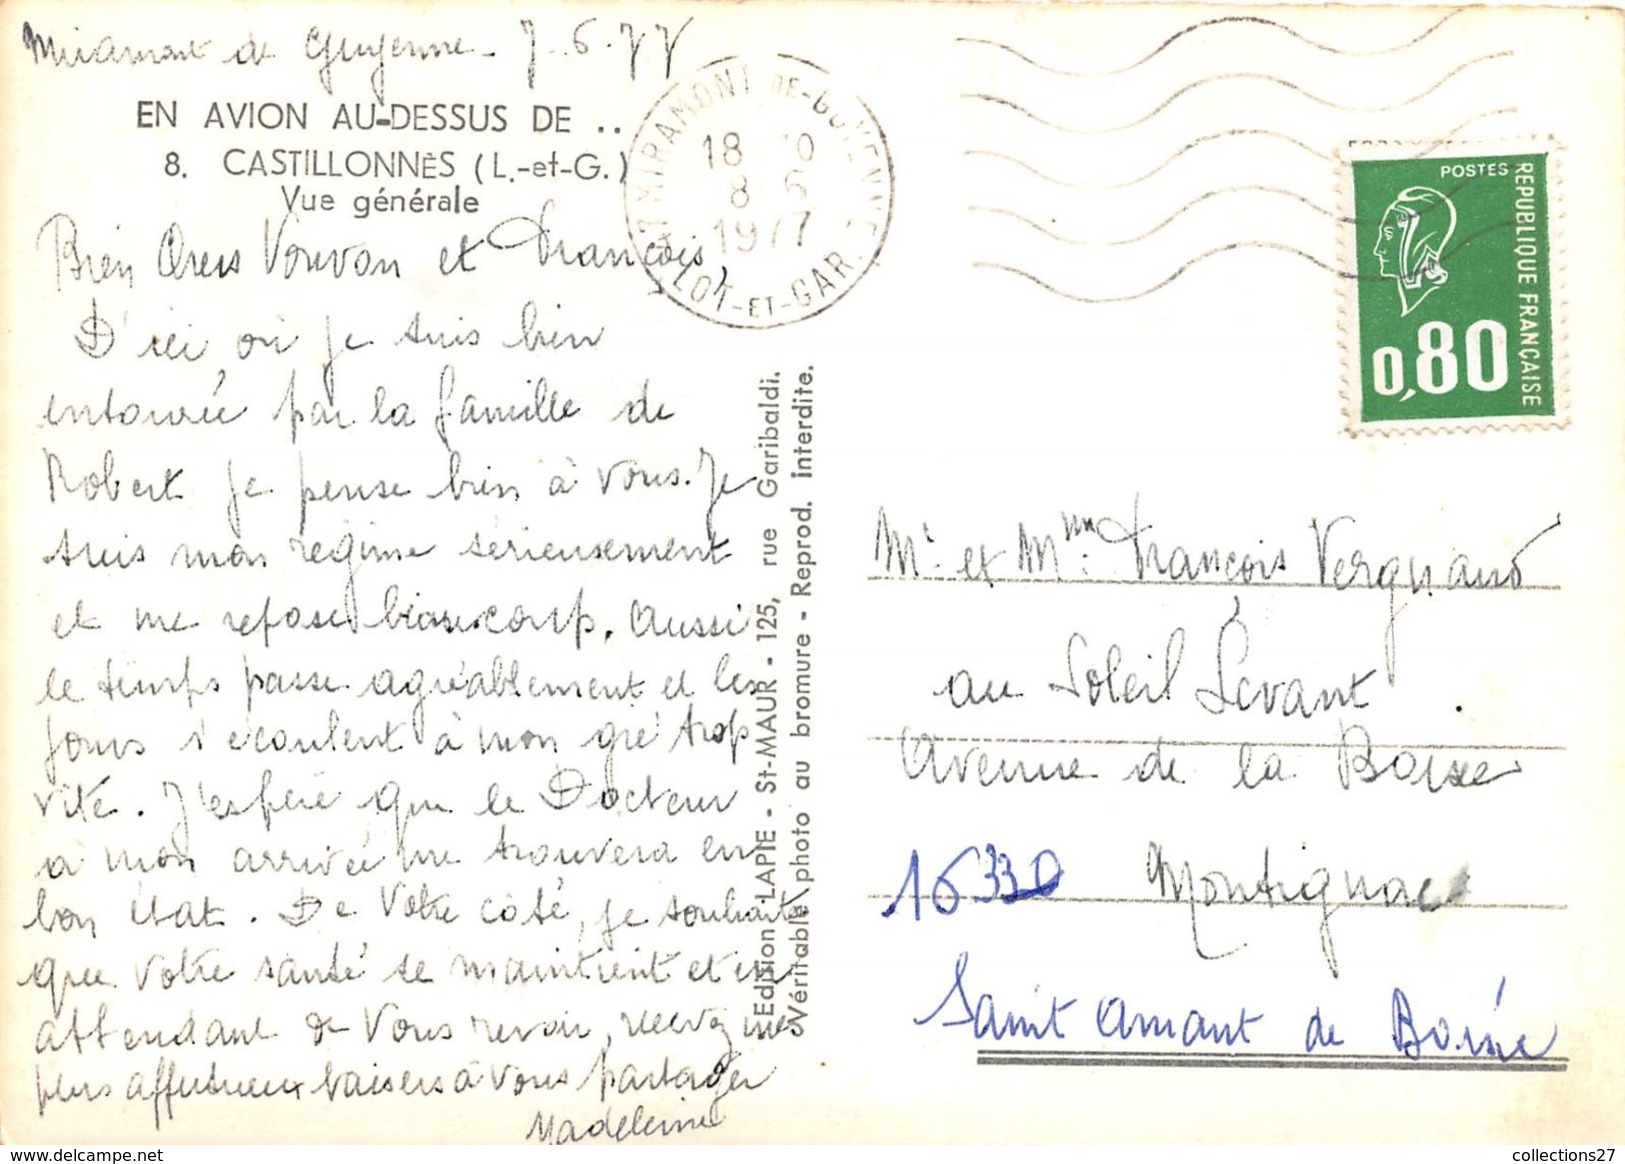 Miramont de Guyenne - 7-6-77
EN AVION AU-DESSUS DE ..
8. CASTILLONNÈS (L.-et-G.)
Vue générale
Bien Chers Vonvon et François,
D'ici où je suis bien
entourée par la famille de
Robert je pense bien à vous. Je
suis mon régime sérieusement
et me repose beaucoup. Aussi
le temps passe agréablement et les
jours s'écoulent à mon gré trop
vite. J'espère que le Docteur
à mon arrivée me trouvera en
bon état. De Votre côté, je souhaite
que Votre santé se maintient et en
attendant de Vous revoir, recevez mes
plus affectueux baisers à Vous partager
Madeleine
47 MIRAMONT-DE-GUYENNE
18 30
8-6
1977
LOT-ET-GAR.
Edition LAPIE - St-MAUR - 125, rue Garibaldi.
Véritable photo au bromure - Reprod. interdite.
POSTES
REPUBLIQUE FRANÇAISE
0,80
Mr et Mme François Vergnaud
au Soleil Levant
Avenue de la Boixe
16330 Montignac
Saint Amant de Boixe
collections27